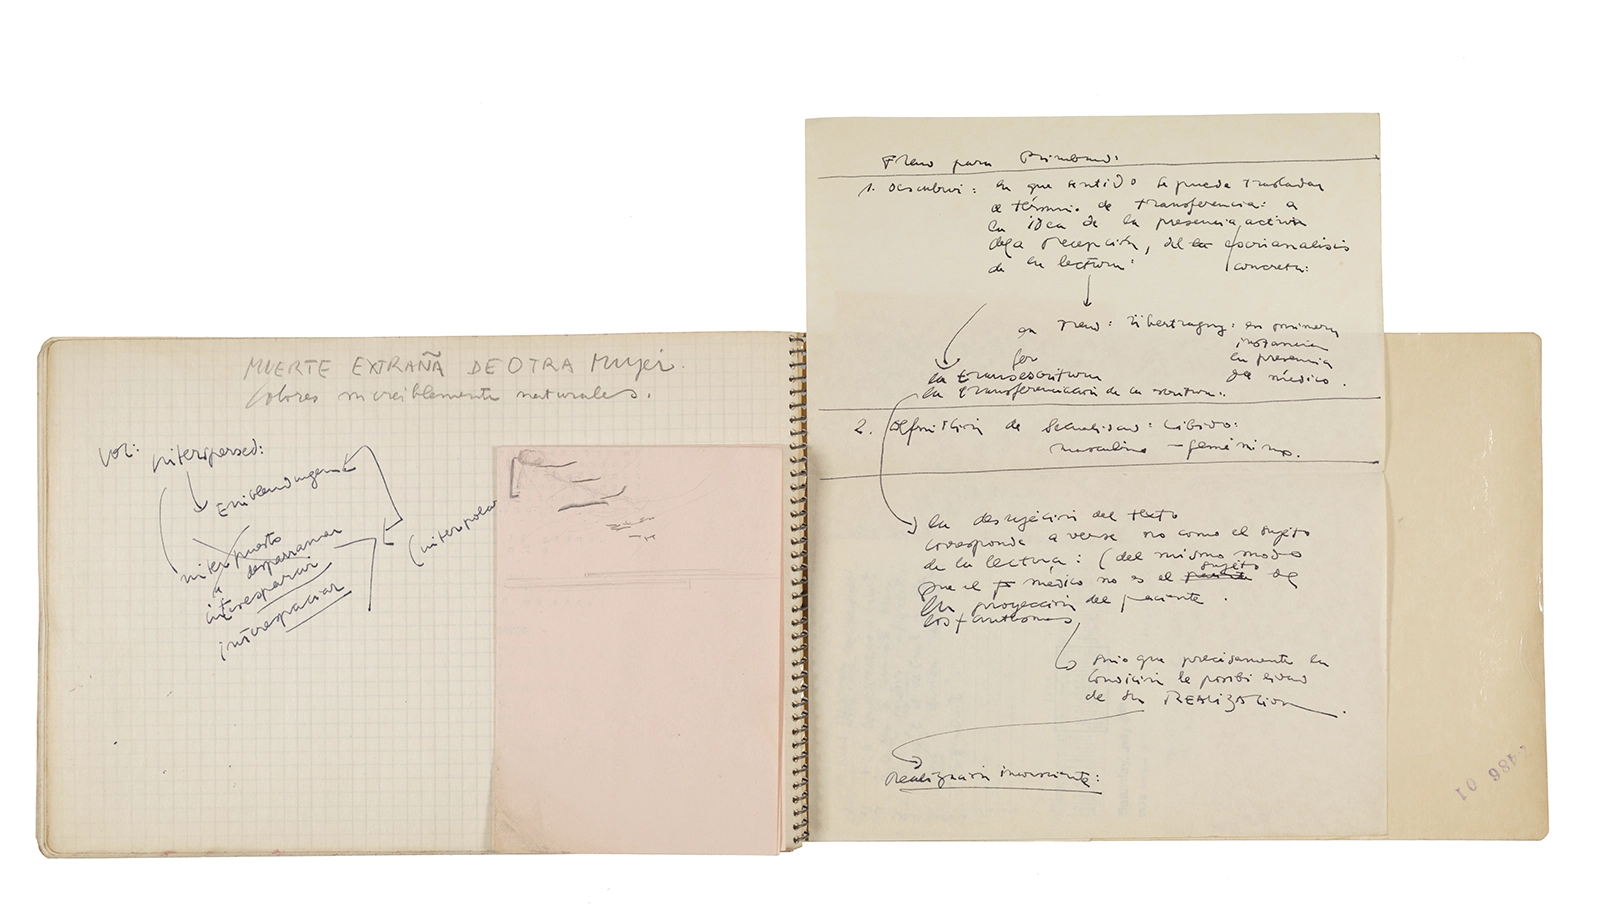 MUERTE EXTRAÑA DE OTRA MUJER.
Colores increiblemente naturales.
Vol: interspersed:
interpuesto
desparramar
a
interesparcir
interespaciar
(interpolar
Freud para Rimbaud:
1. Descubrir: en que sentido se puede trasladar
el término de transferencia: a
la idea de la presencia activa
de la recepción, del la psicoanalisis
de la lectura: concreta:
en Freud: Übertragung: en primera
instancia
por la presencia
la transescritura del médico.
la transferenciación de la escritura.
2. Definición de sexualidad: Libido:
masculino – femenino.
la desujeción del texto
corresponde a verse no como el sujeto
de la lectura: (del mismo modo
sujeto
que el médico no es el de
la proyección del paciente.
los fantasmas
sino que precisamente la
condición de posibilidad
de su REALIZACION.
Realización inconsciente:
486 01